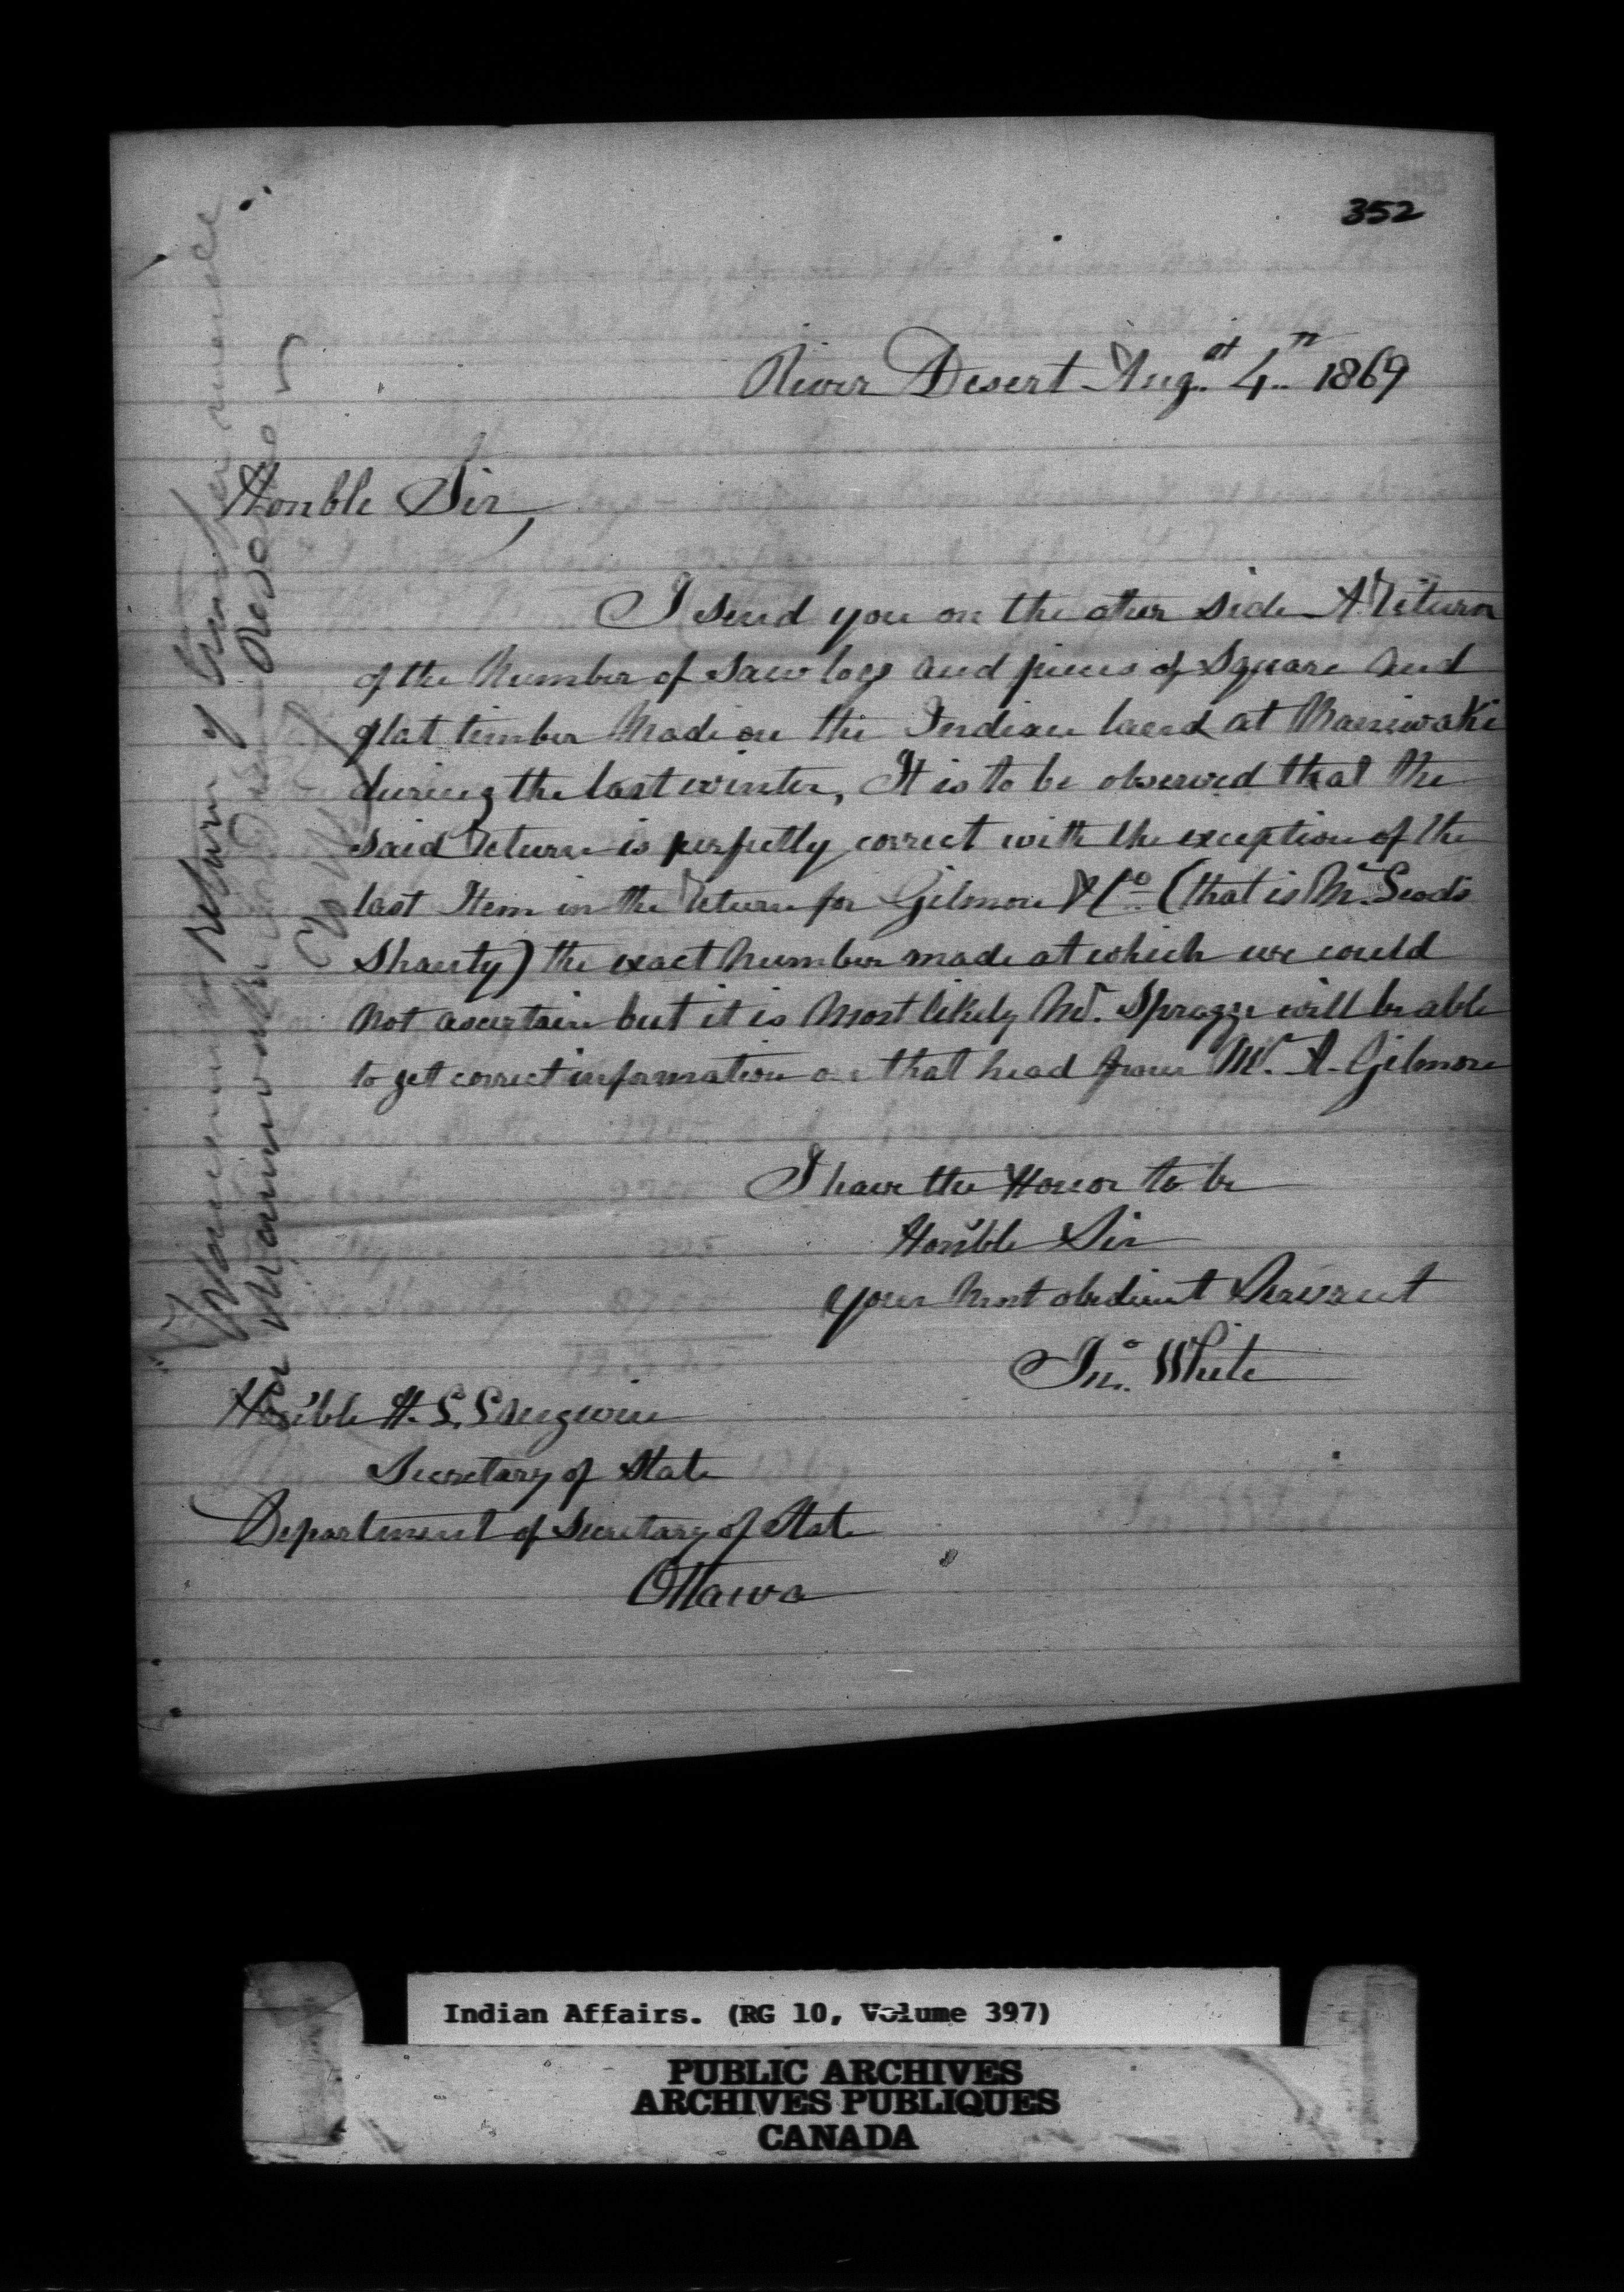 352
River Desert Augst 4th 1869
Honble Sir,
I send you on the other side A Return
of the Number of Saw logs and pieces of Square and
flat timber Made on the Indian land at Maniwaki
during the last winter, It is to be observed that the
said Return is perfectly correct with the exception of the
last Item in the Return for Gilmore & Co. (that is Mr.
Shanty) the exact Number made at which we could
Not ascertain but it is Most likely Mr. Spragge will be able
to get correct information on that head from Mr. A. Gilmore
I have the Honor to be
Honble Sir
your Most obedient Servant
Jno. White
Honble H. L. Langevin
Secretary of State
Department of Secretary of State
Ottawa
Return of Timber made
on Maniwaki Reserve
Indian Affairs. (RG 10, Volume 397)
PUBLIC ARCHIVES
ARCHIVES PUBLIQUES
CANADA